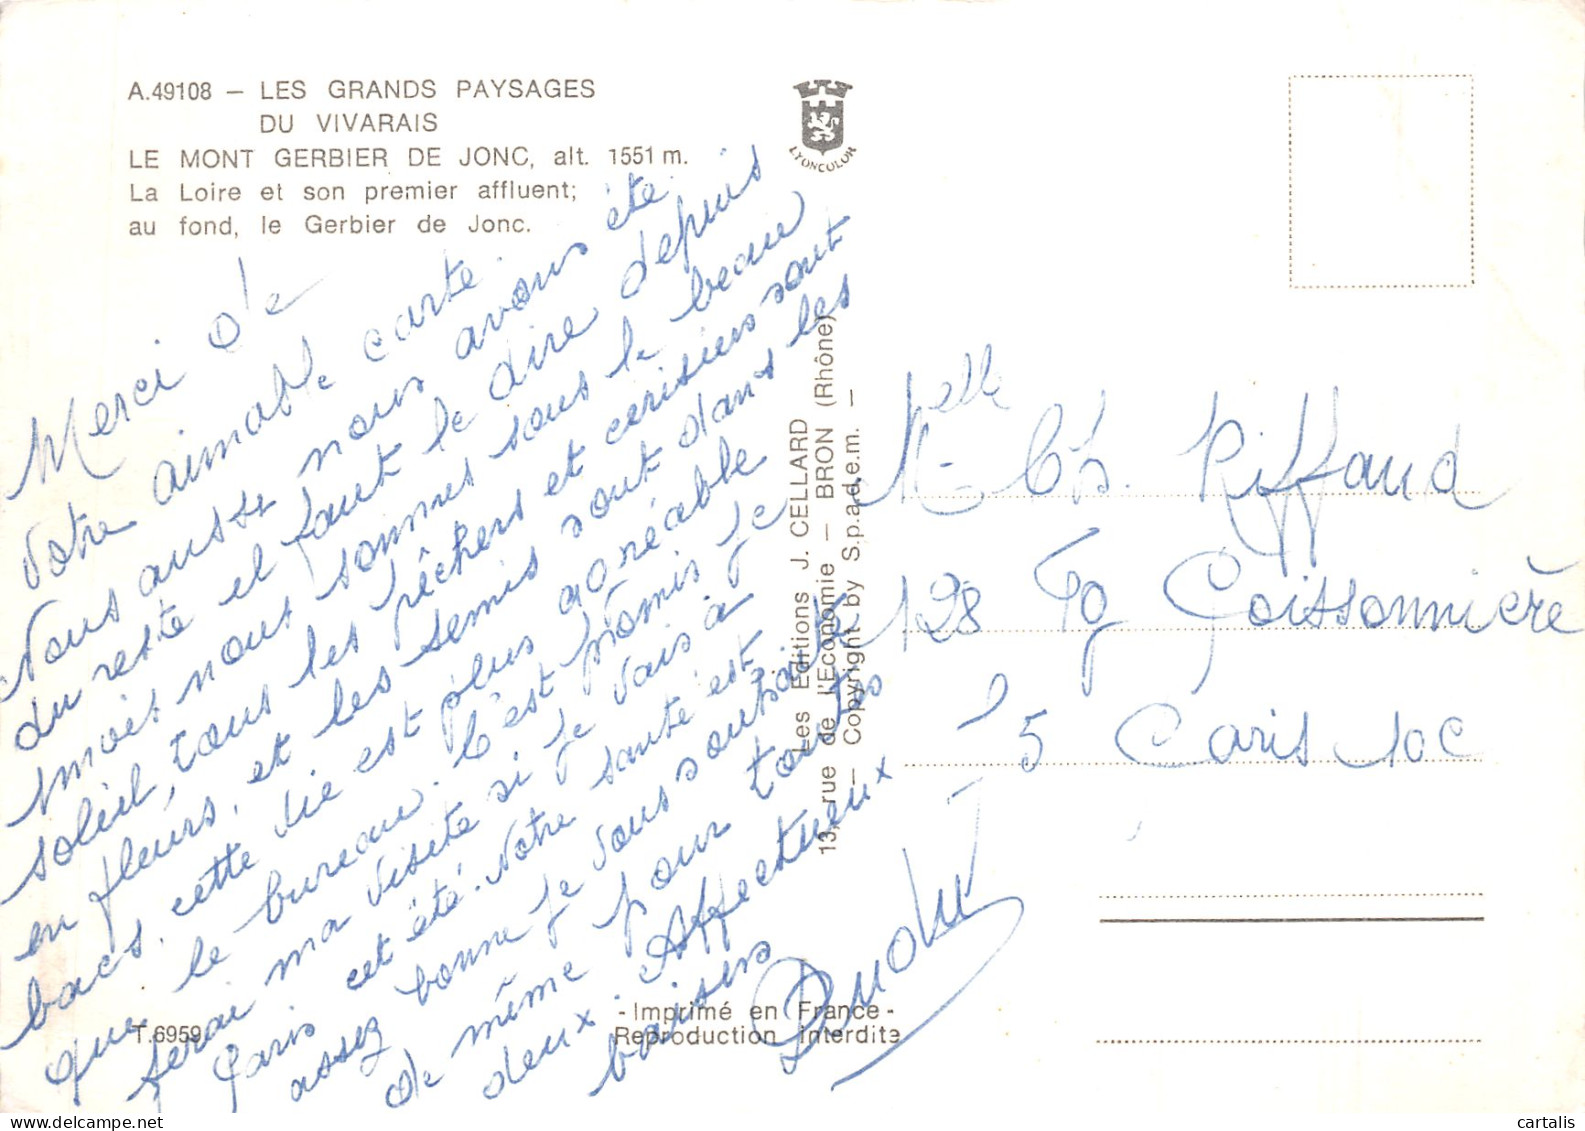 A.49108 — LES GRANDS PAYSAGES
DU VIVARAIS
LE MONT GERBIER DE JONC, alt. 1551 m.
La Loire et son premier affluent;
au fond, le Gerbier de Jonc.
LYONCOLOR
Merci de
votre aimable carte.
Nous aussi nous avons été
du reste il faut le dire depuis
1 mois nous sommes sous le beau
soleil, tous les pêchers et cerisiers sont
en fleurs, et les semis sont dans les
bacs, cette vie est plus agréable
que le bureau. C'est promis je
ferai ma visite si je vais à
Paris cet été. Votre santé est
assez bonne je vous souhaite
de même pour toutes
deux. Affectueux
baisers
13, rue de l'Economie — BRON (Rhône)
Les Editions J. CELLARD
— Copyright by S.p.a.d.e.m. —
Melle Ch. Riffaud
128 Fg Poissonnière
75 Paris 10e
T.6959
- Imprimé en France -
Reproduction interdite
cartalis